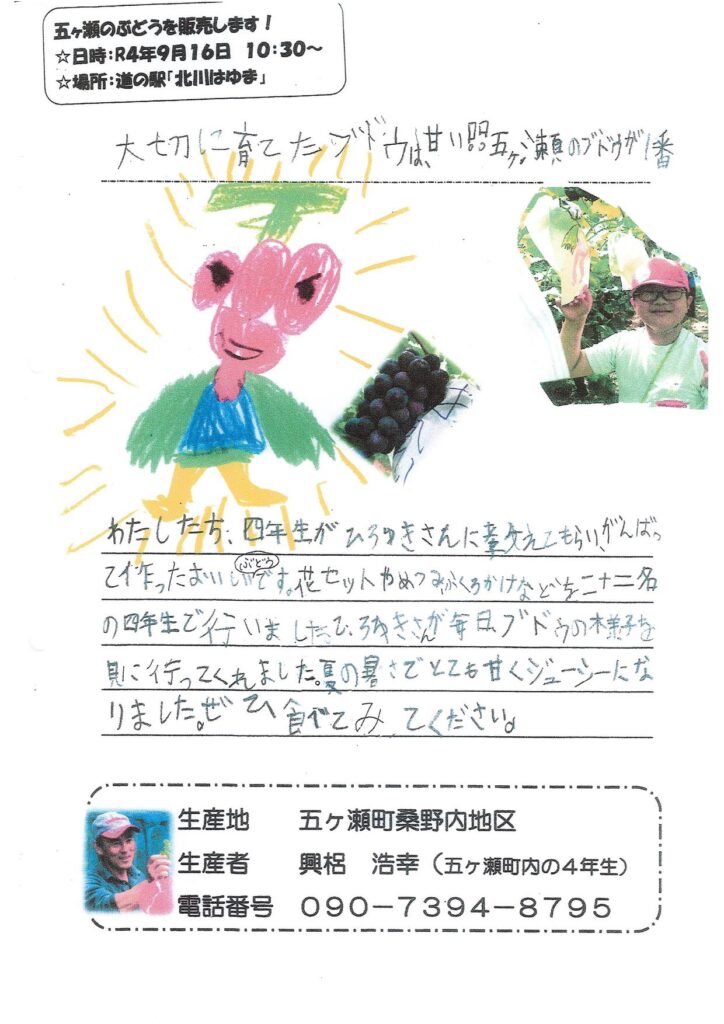 五ヶ瀬のぶどうを販売します！
☆日時：R4年9月16日 10:30～
☆場所：道の駅「北川はゆま」
大切に育てたブドウは、甘い 五ヶ瀬のブドウが1番
わたしたち、四年生がひろゆきさんに教えてもらい、がんばっ
て作ったおいしいぶどうです。花セットやめつみ、ふくろかけなどを二十二名
の四年生で行いました。ひろゆきさんが毎日、ブドウの様子を
見に行ってくれました。夏の暑さでとても甘くジューシーにな
りました。ぜひ食べてみてください。
生産地 五ヶ瀬町桑野内地区
生産者 興梠 浩幸（五ヶ瀬町内の4年生）
電話番号 090－7394－8795